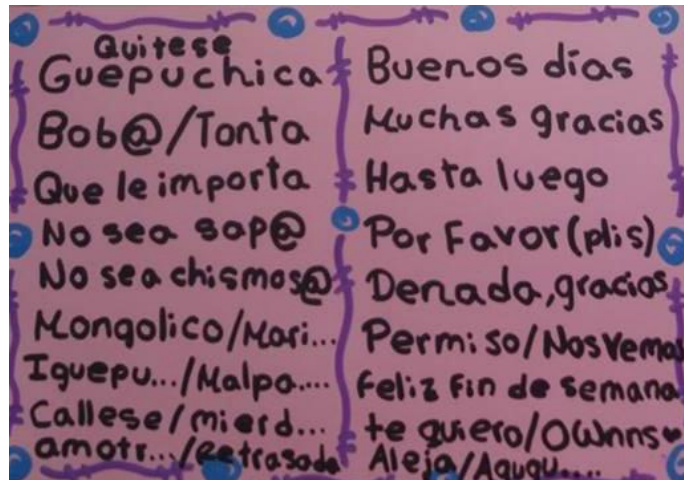 Quitese
Guepuchica
Bob@/Tonta
Que le importa
No sea sap@
No sea chismos@
Mongolico/Mari...
Iguepu.../Malpa....
Callese/mierd...
amotr.../Retrasada
Buenos días
Muchas gracias
Hasta luego
Por Favor (plis)
Denada, gracias
Permiso/Nos Vemos
Feliz Fin de semana
te quiero/OWnns♥
Aleja/Agugu....